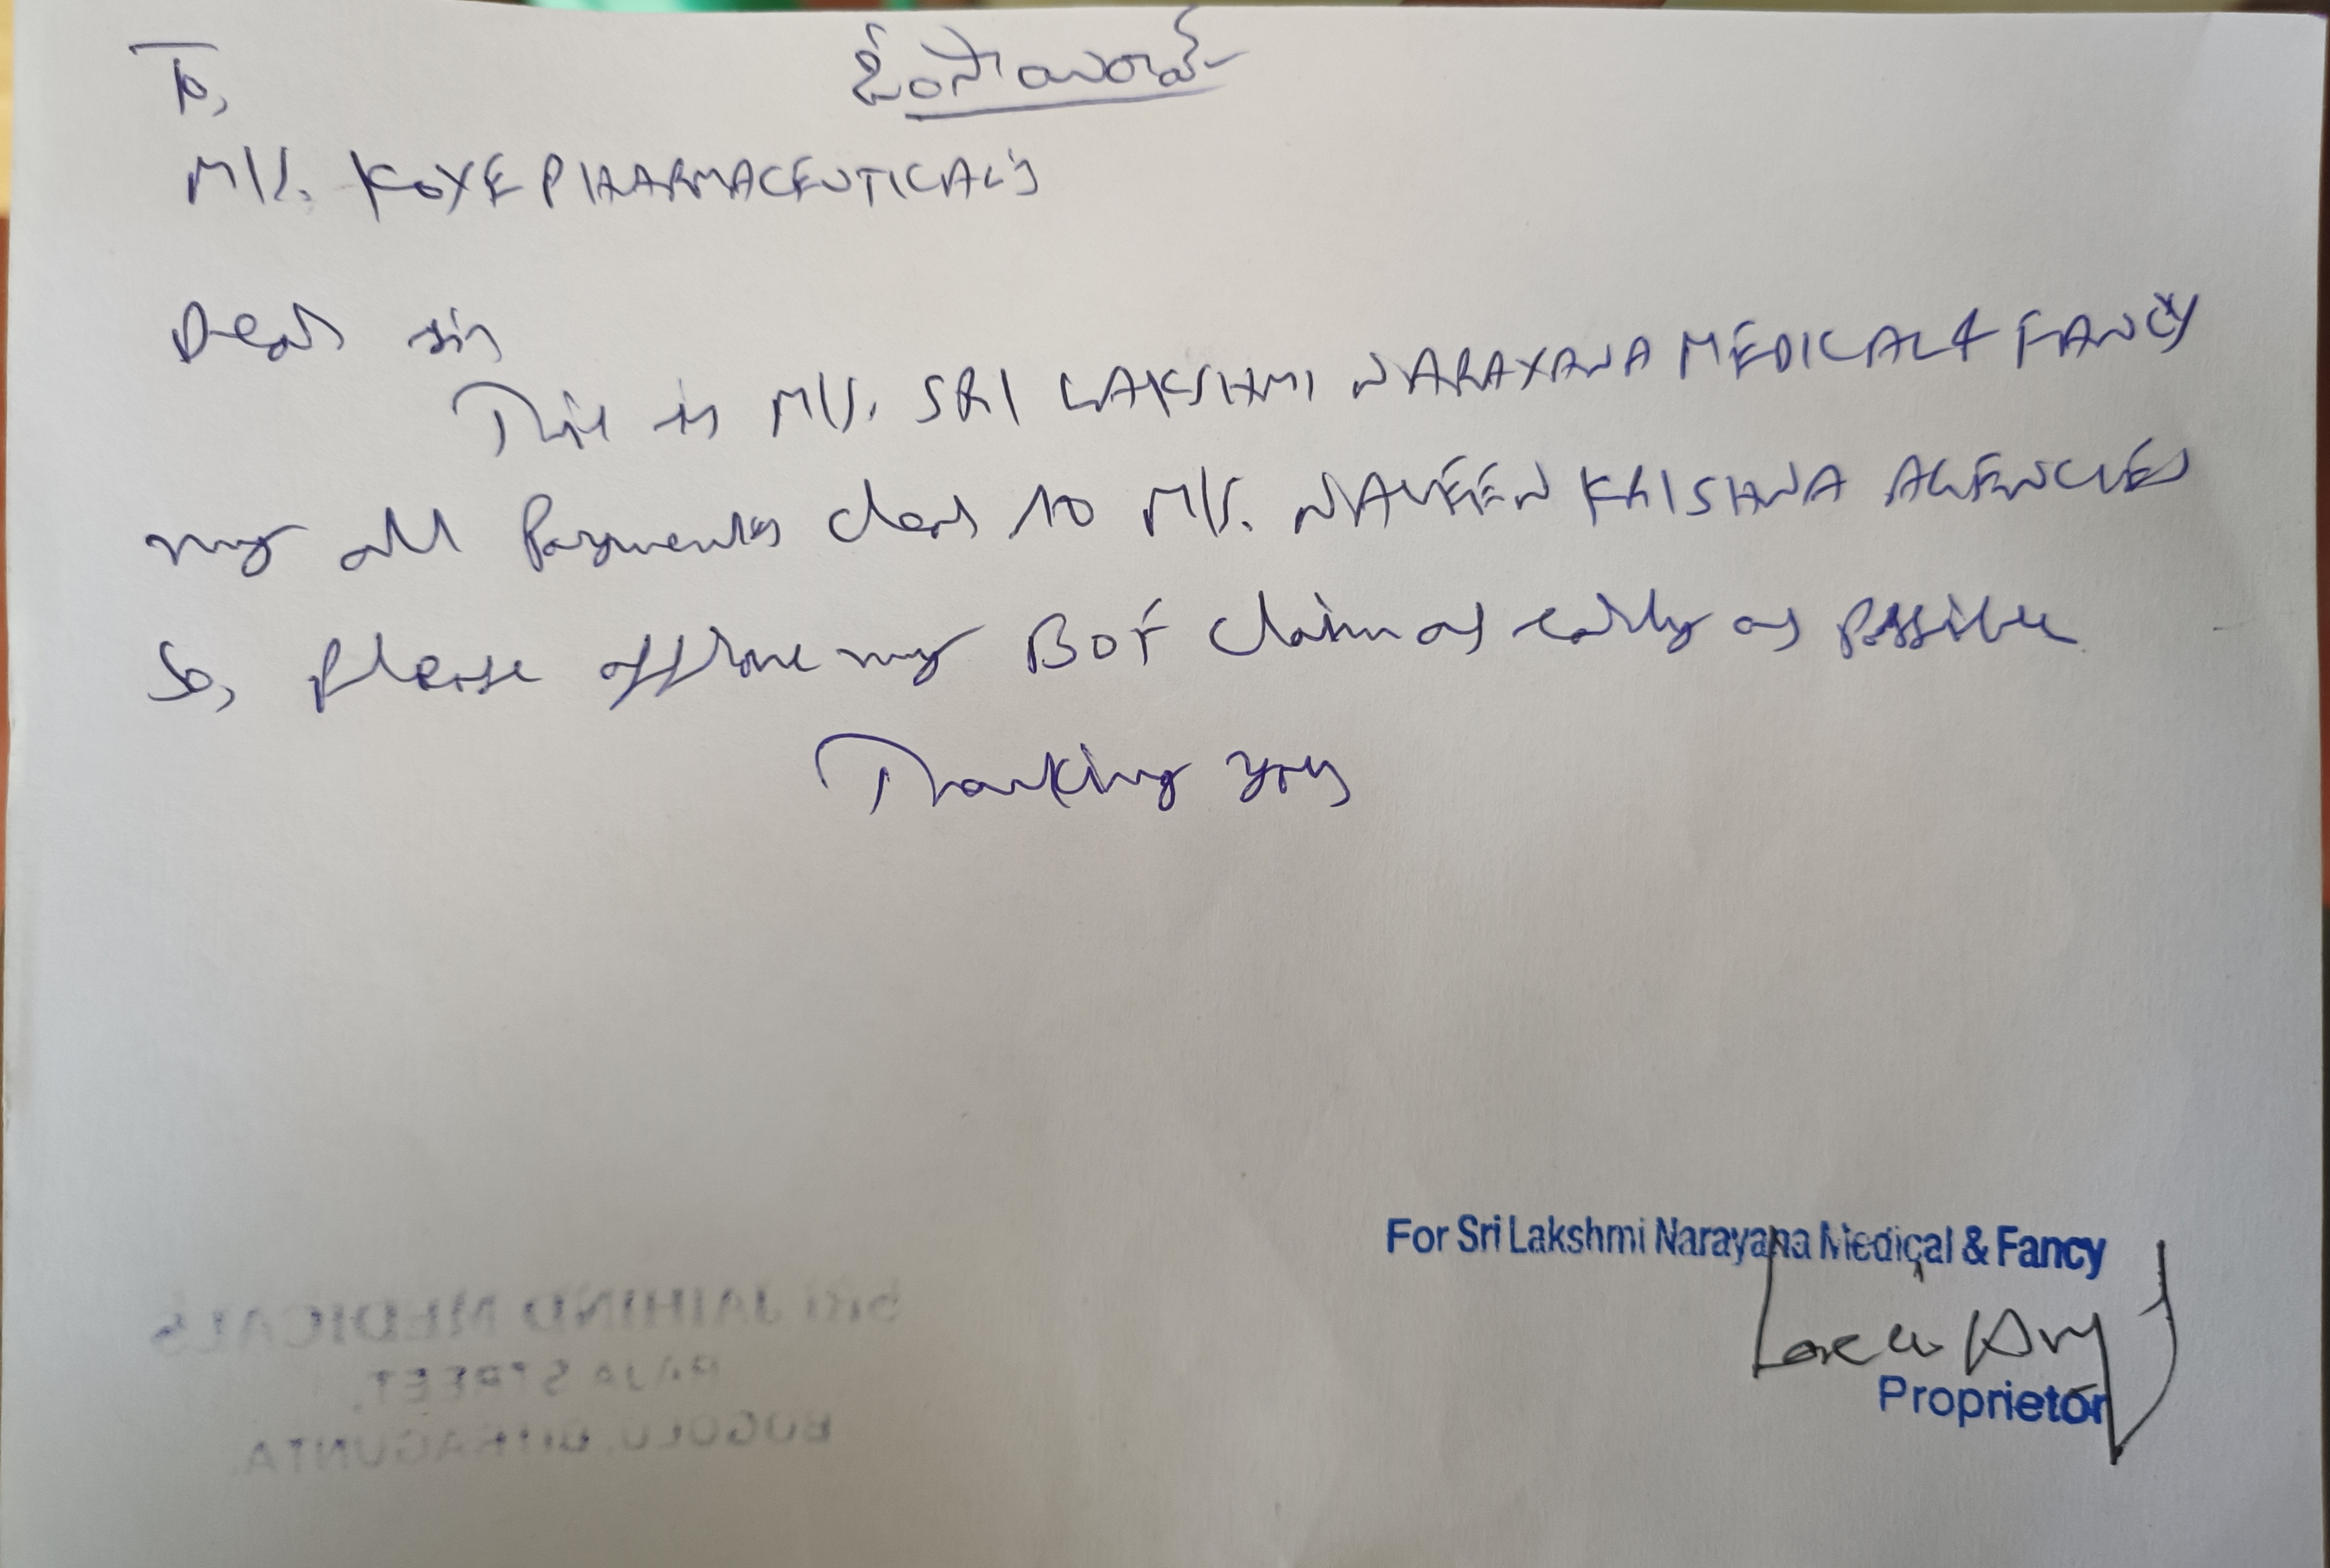 ఓంసాయిరామ్
To,
M/s. KOYE PHARMACEUTICAL'S
Dear sir
This is M/s. SRI LAKSHMI NARAYANA MEDICAL & FANCY
my all Payments clear to M/s. NAVEEN KRISHNA AGENCIES
So, please approve my BOF claim as early as possible
Thanking you
For Sri Lakshmi Narayana Medical & Fancy
Proprietor
SRI JAIHIND MEDICALS
RAJA STREET,
BOGOLU, BITRAGUNTA.